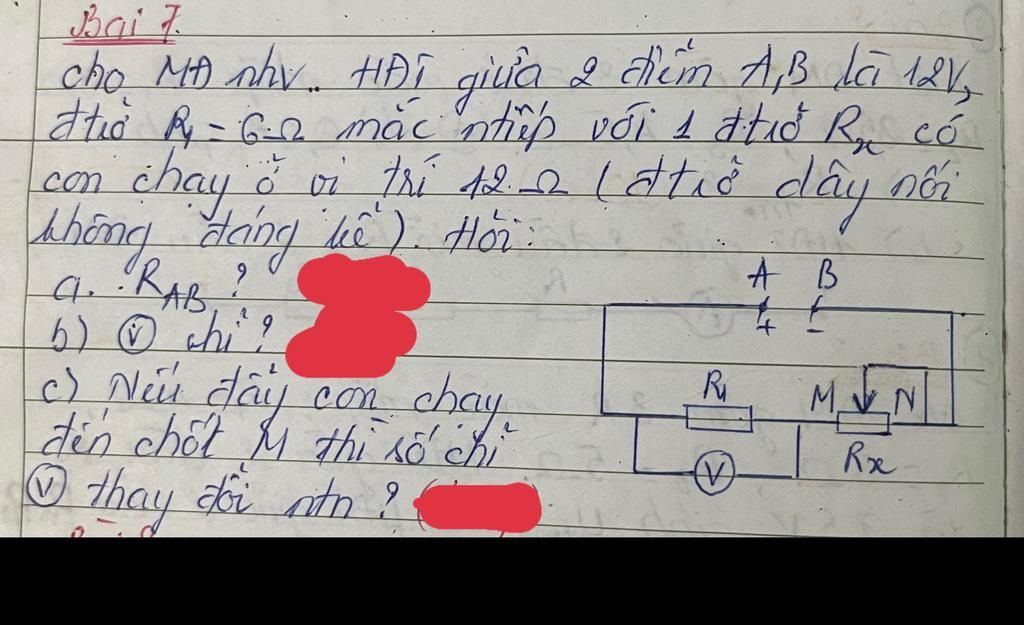 Bài 7.
cho MĐ nhv.. HĐT giữa 2 điểm A,B là 12V,
đtrở R₁ = 6Ω mắc ntiếp với 1 đtrở Rₓ có
con chạy ở vị trí 12Ω (đtrở dây nối
không đáng kể). Hỏi:
a. RAB ?
b) Ⓥ chỉ ?
c) Nếu đẩy con chạy
đến chốt M thì số chỉ
Ⓥ thay đổi ntn ? (
A B
+ -
R₁ M N
Rx
V